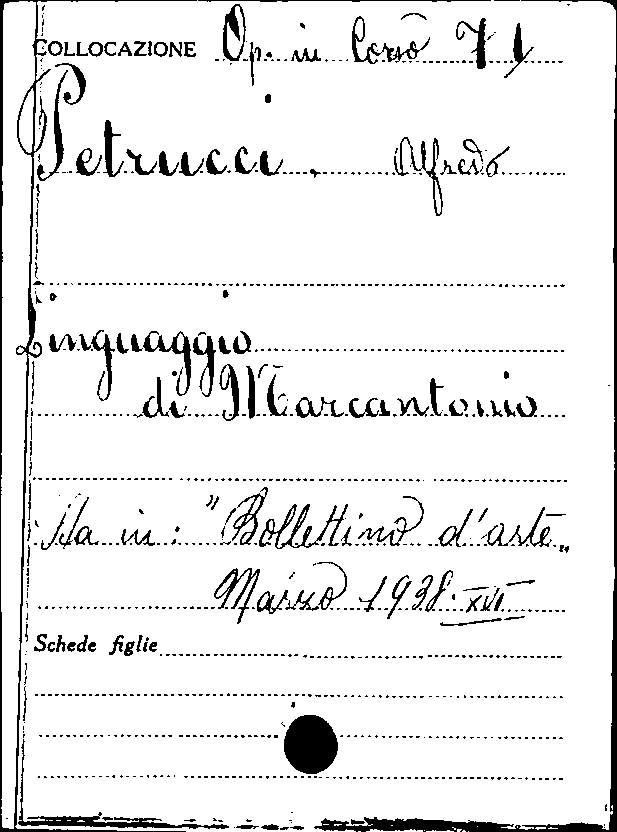 COLLOCAZIONE Op. in Corso 71
Petrucci, Alfredo
Linguaggio
di Marcantonio
Sta in: "Bollettino d'arte„
Marzo 1938. XVI
Schede figlie